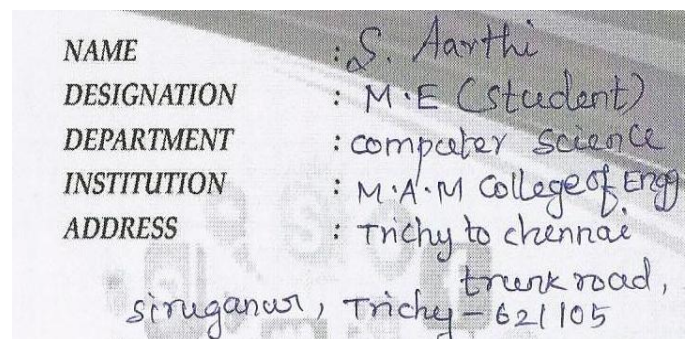 NAME : S. Aarthi
DESIGNATION : M.E (Student)
DEPARTMENT : computer science
INSTITUTION : M.A.M College of Engg
ADDRESS : Trichy to chennai
trunk road,
siruganur, Trichy - 621105